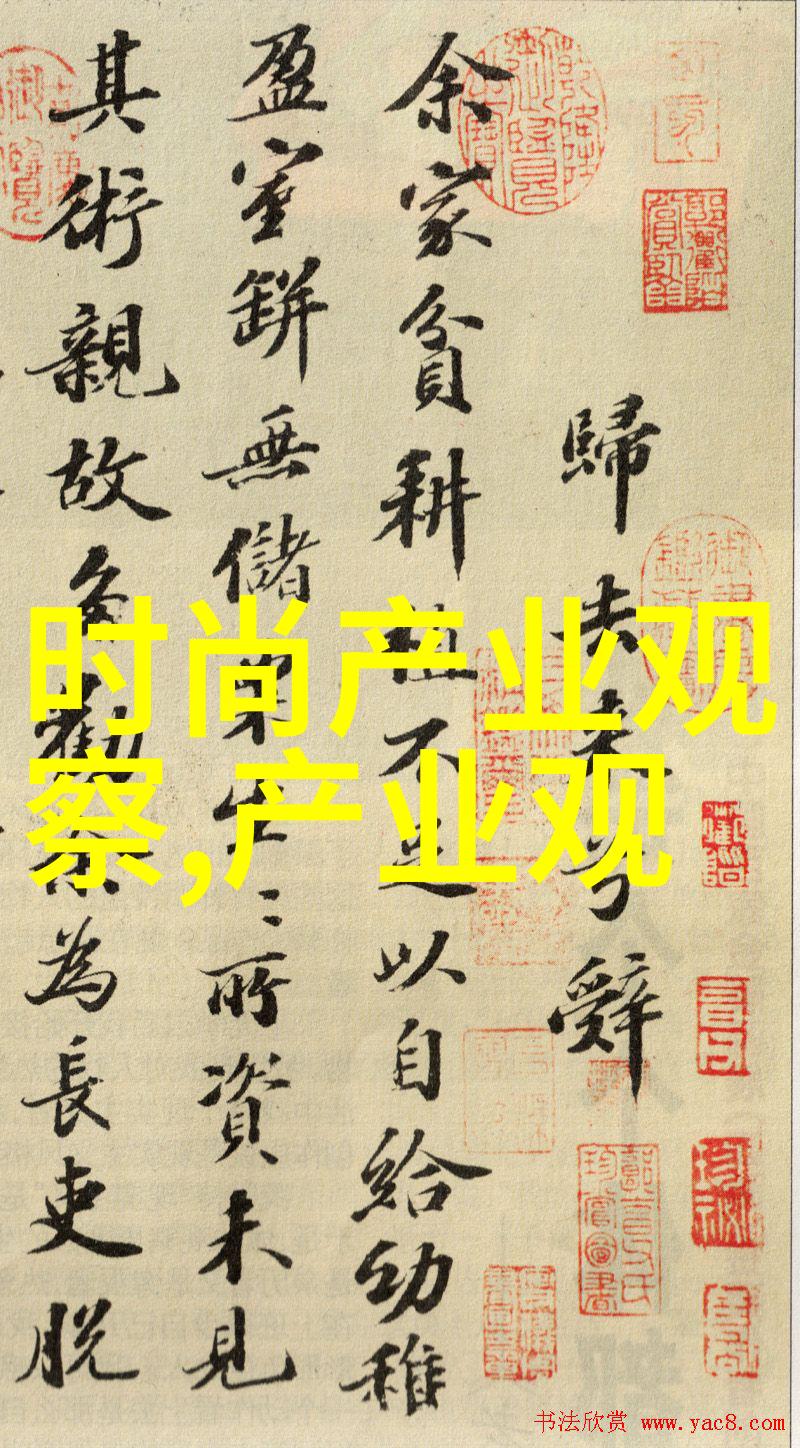 歸去來兮辭
余家貧耕植不足以自給幼稚
盈室缾無儲粟生〻所資未見
其術親故多勸余為長吏脫
时尚产业观
察,产业观
书法欣赏 www.yac8.com